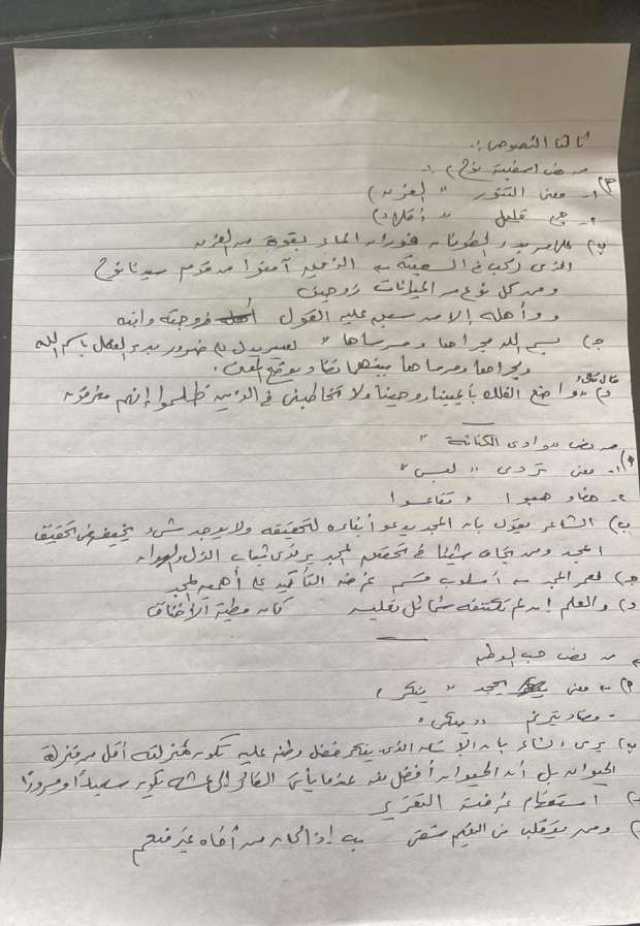 ثالثا النصوص :.
من نص سفينة نوح :.
أ) ١- معنى التنور " الفرن "
٢- جمع قليل " أقلاء "
ب) علامة بدء الطوفان فوران الماء بقوة من الفرن
الذى ركب فى السفينة هم الذين آمنوا من قوم سيدنا نوح
ومن كل نوع من الحيوانات زوجين
وأهله إلا من سبق عليه القول زوجته وابنه
جـ) بسم الله مجراها ومرساها " تعبير يدل على ضرورة بدء العمل باسم الله
ومجراها ومرساها بينهما تضاد يوضح المعنى .
د) قال تعالى: " واصنع الفلك بأعيننا ووحينا ولا تخاطبنى فى الذين ظلموا إنهم مغرقون
من نص وادى الكنانة "
أ) ١- معنى تردى " لبس "
٢- مضاد هبوا " تقاعسوا
ب) الشاعر يقول بأن المجد يدعو أبناءه لتحقيقه ولا يوجد شىء يخيفه من تحقيق
المجد ومن فى تحقيق المجد يرتدى ثياب الذل والهوان
جـ) لعمر المجد أسلوب قسم غرضه التأكيد على أهمية المجد
د) والعلم إن لم تكتنفه شمائل تعليه كان مطية الإخفاق
من نص حب الوطن
أ) معنى يجحد " ينكر "
- مضاد يترنم
ب) يرى الشاعر بأن الإنسان الذى ينكر فضل وطنه عليه تكون منزلته أقل من منزلة
الحيوان بل أن الحيوان أفضل منه عندما يأتى الطائر إلى عشه يكون سعيدا ومسرورا
استفهام غرضه التقرير
ومن